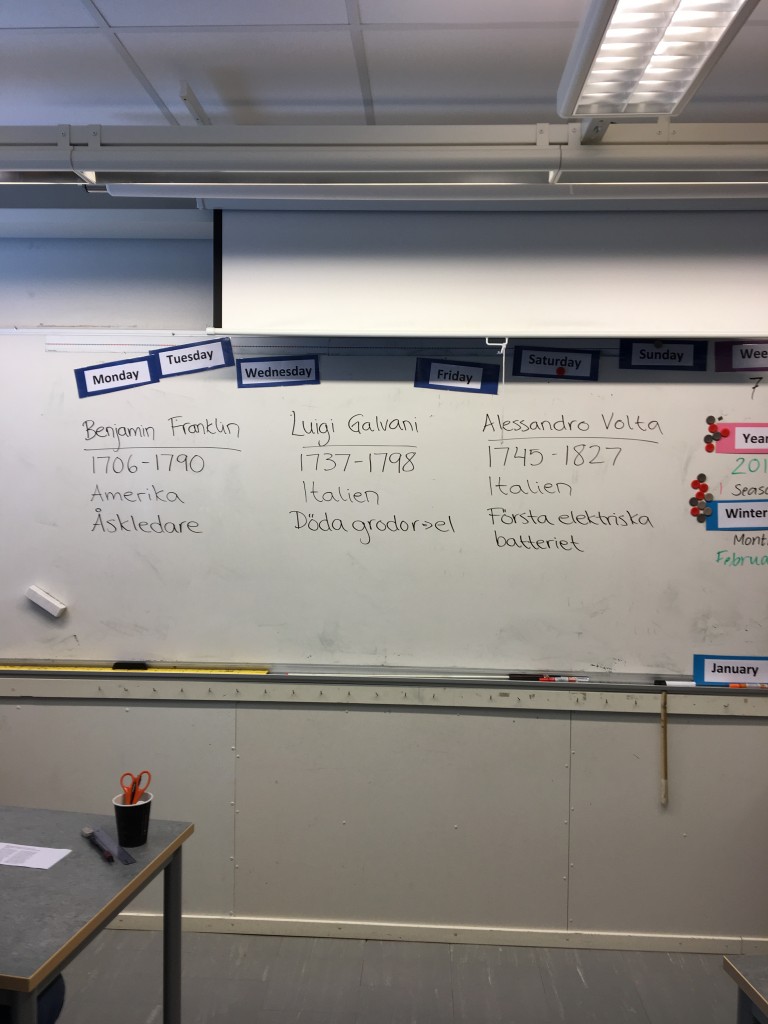 Monday
Tuesday
Wednesday
Friday
Saturday
Sunday
Benjamin Franklin
1706-1790
Amerika
Åskledare
Luigi Galvani
1737-1798
Italien
Döda grodor->el
Alessandro Volta
1745-1827
Italien
Första elektriska
batteriet
7
Year
201
Seaso
Winter
Mont
Februa
January